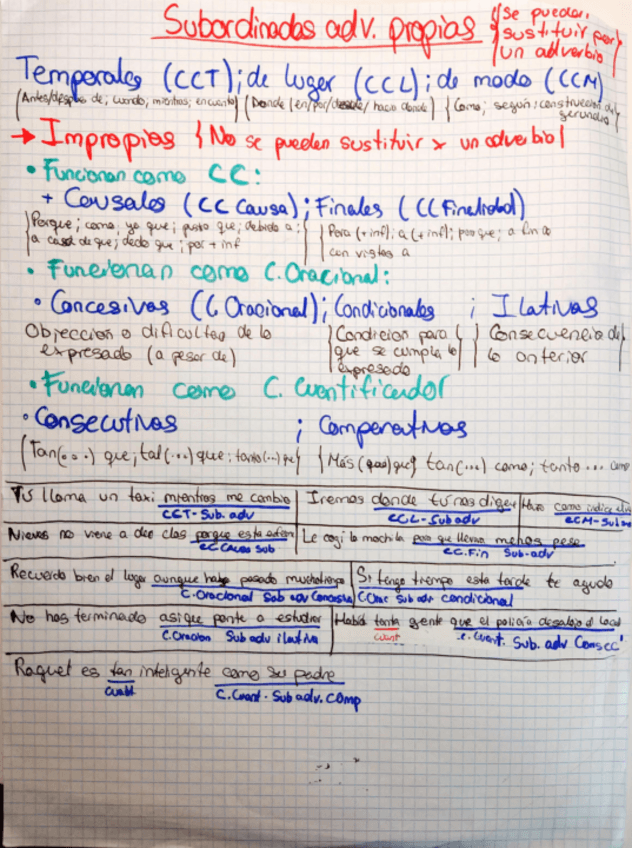 Subordinadas adv. propias {Se pueden sustituir por un adverbio
Temporales (CCT); de lugar (CCL); de modo (CCM)
{Antes/después de; cuando; mientras; en cuanto} {Donde (en/por/desde/hacia donde} {Como; según; construcción de gerundio
→ Impropias {No se pueden sustituir x un adverbio}
• Funcionan como CC:
+ Causales (CC Causa); Finales (CC Finalidad)
{Porque; como, ya que; puesto que; debido a; {Para (+inf); a (+inf); porque; a fin de
a causa de que; dado que; por + inf con vistas a
• Funcionan como C.Oracional:
• Concesivas (C.Oracional); Condicionales ; Ilativas
Objeccion o dificultad de lo {Condicion para { Consecuencia de
expresado (a pesar de) que se cumpla lo lo anterior
expresado
• Funcionan como C. Cuantificador
• Consecutivas ; Comparativas
{Tan(...) que; tal(...) que; tanto(...) que {Más (que) tan(...) como; tanto... como
Tú llama un taxi mientras me cambio Iremos donde tú nos digas Hazlo como indica
CCT-Sub. adv CCL-Sub adv CCM-Sub
Nieves no viene a dar clas porque está Le cogí la mochila para que llevara menos peso
CC Causa Sub CC.Fin Sub-adv
Recuerdo bien el lugar aunque haya pasado mucho tiempo Si tengo tiempo esta tarde te ayudo
C.Oracional Sub adv Concesiva C.Orac Sub adv condicional
No has terminado asique ponte a estudiar Había tanta gente que el policía desalojo el local
C.Oracion Sub adv ilativa cuant c. Cuant. Sub. adv Consec
Raquel es tan inteligente como su padre
cuant C.Cuant. Sub adv. Comp